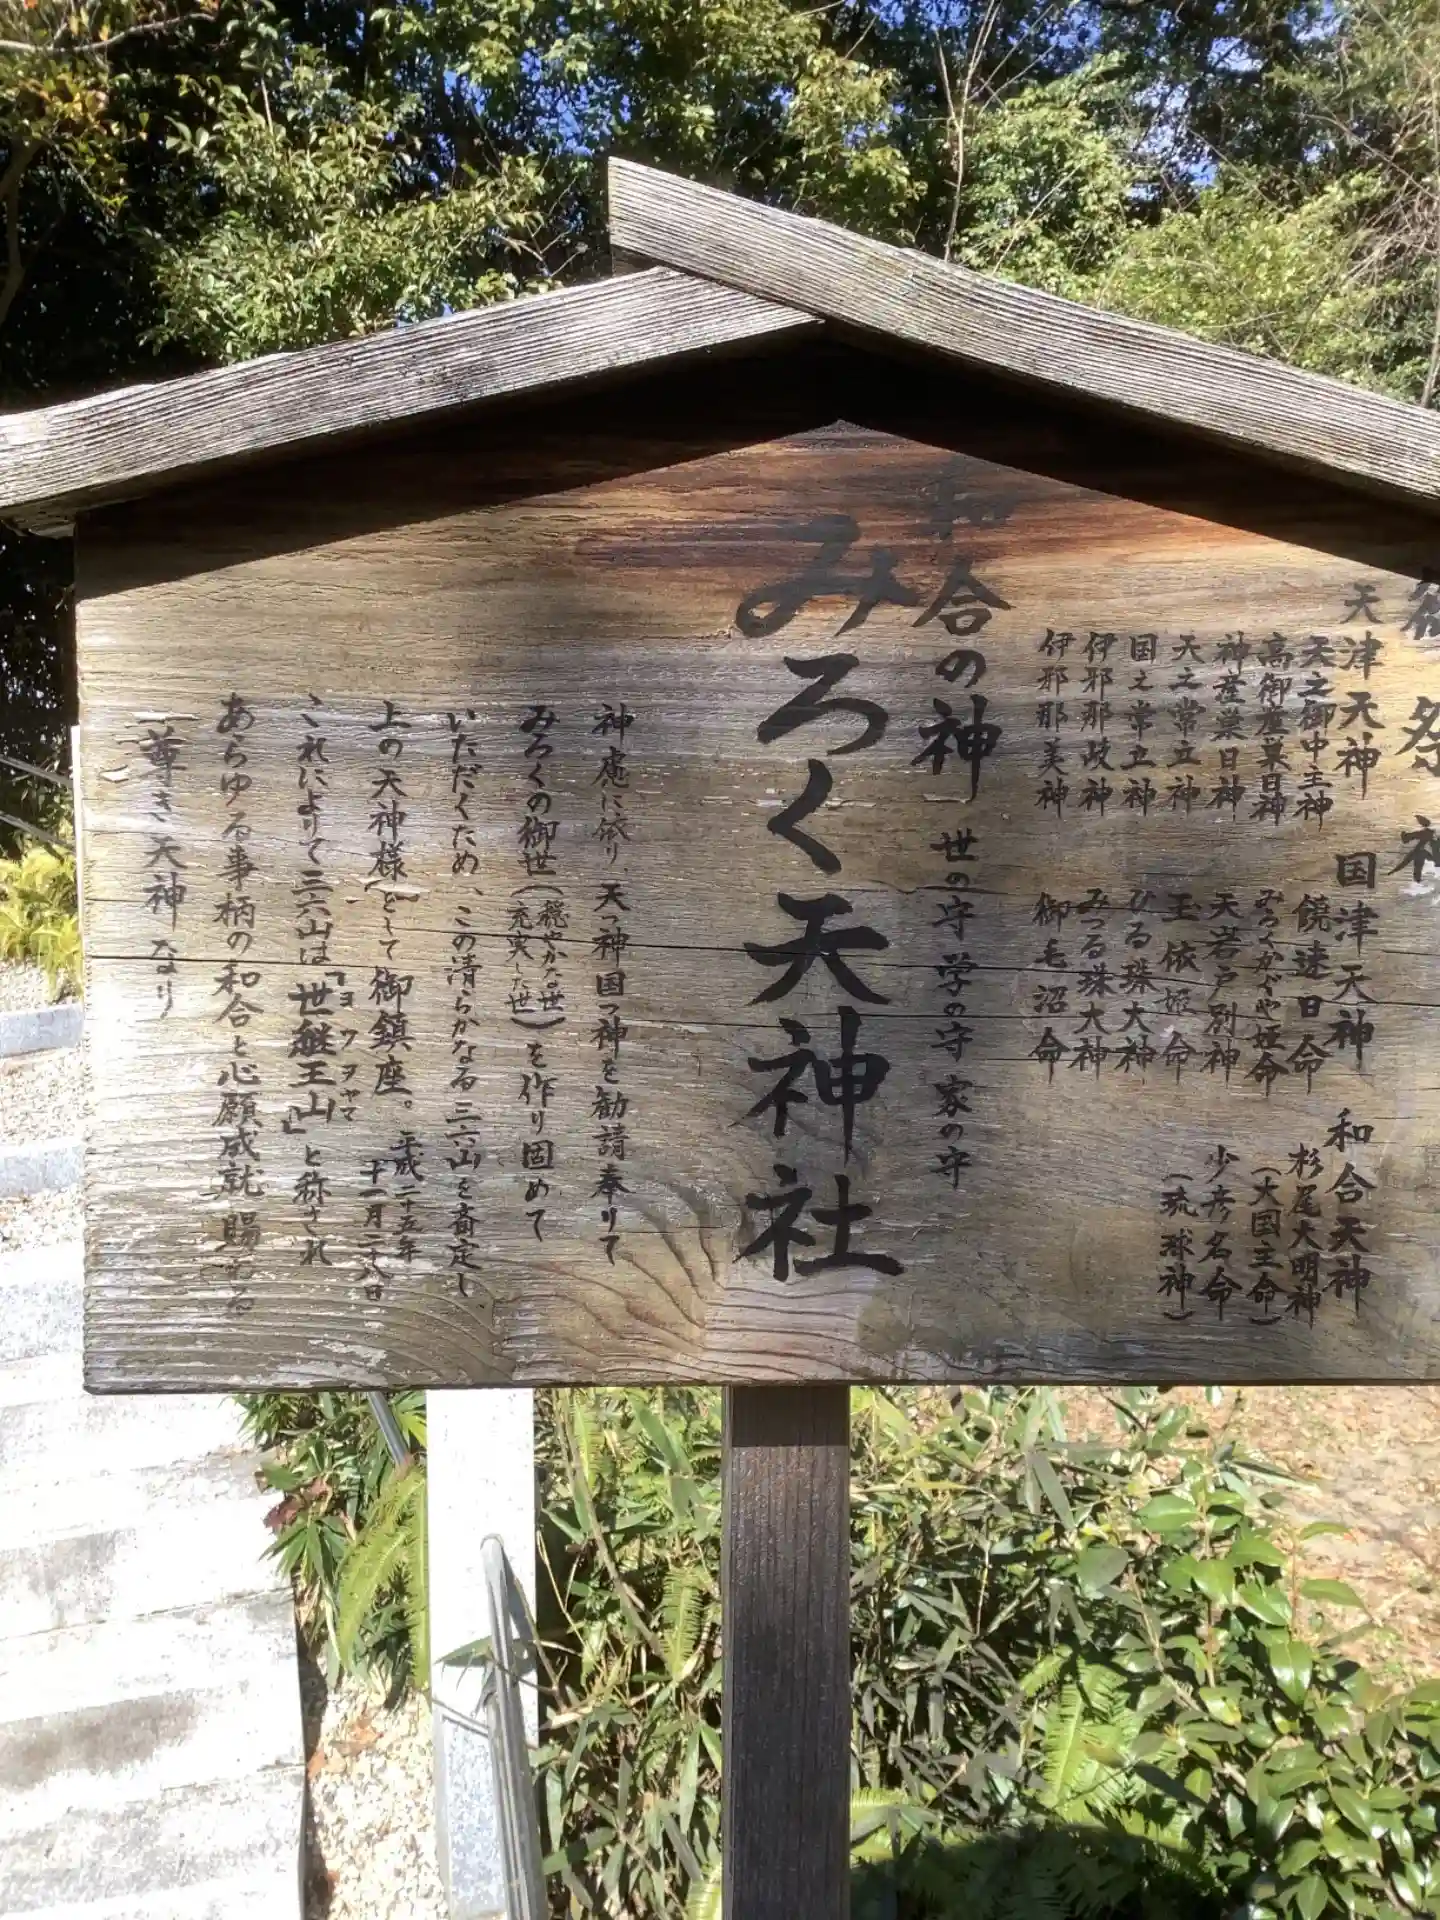 御祭神
天津天神
天之御中主神
高御産巣日神
神産巣日神
天之常立神
国之常立神
伊邪那岐神
伊邪那美神
国津天神
饒速日命
みろくかぐや姫命
天岩戸別神
玉依姫命
ひる珠大神
みつる珠大神
御毛沼命
和合天神
杉尾大明神
(大国主命)
少彦名命
(琉球神)
和合の神 世の守 学の守 家の守
みろく天神社
神慮に依り、天つ神国つ神を勧請奉りて
みろくの御世(穏やかな世 充実した世)を作り固めて
いただくため、この清らかなる三六山を斎定し
上の天神様として御鎮座。平成二十五年 十一月二十八日
これによりて三六山は『世継王山』と称され
ヨツヲヤマ
あらゆる事柄の和合と心願成就賜わる
尊き天神なり